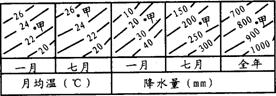 26 甲 24 22 20
26 甲 24 22 20
10 甲 20 30 40
150 甲 200 250 300
700 甲 800 900 1000
一月 七月 一月 七月 全年
月均温（℃） 降水量（mm）